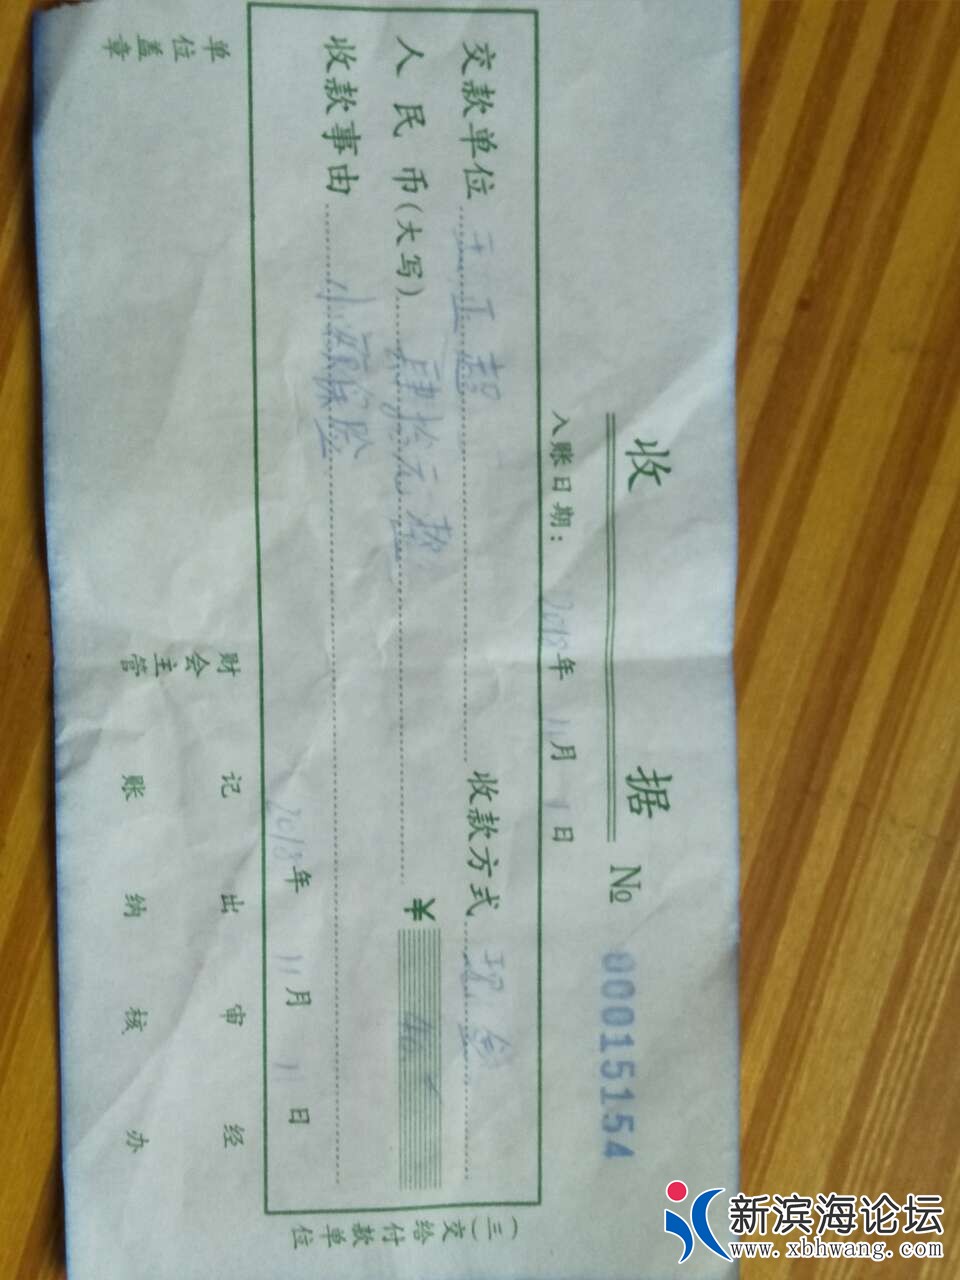 收 据 № 00015154
入账日期: 2018年 11月 11日
交款单位 王正超 收款方式 现金
人民币(大写) 肆拾元整 ¥ 40
收款事由 小额保险
2018年 11月 11日
(三)交给付款单位
单位盖章 财会主管 记账 出纳 审核 经办
新滨海论坛
www.xbhwang.com